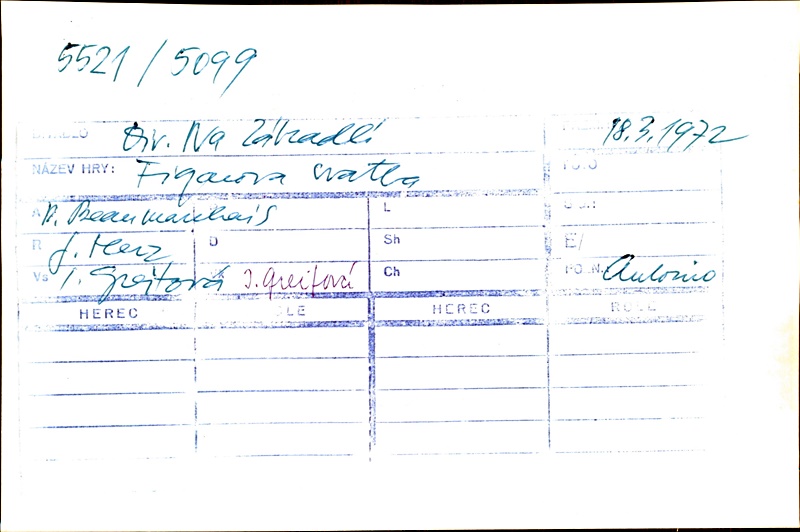 5521 / 5099
DIVADLO Div. Na Zábradlí 18.3.1972
NÁZEV HRY: Figarova svatba
A P. Beaumarchais L
R J. Herz D Sh E/
Vs I. Greifová I. Greifová Ch PO.N. Antonio
HEREC ROLE HEREC ROLE